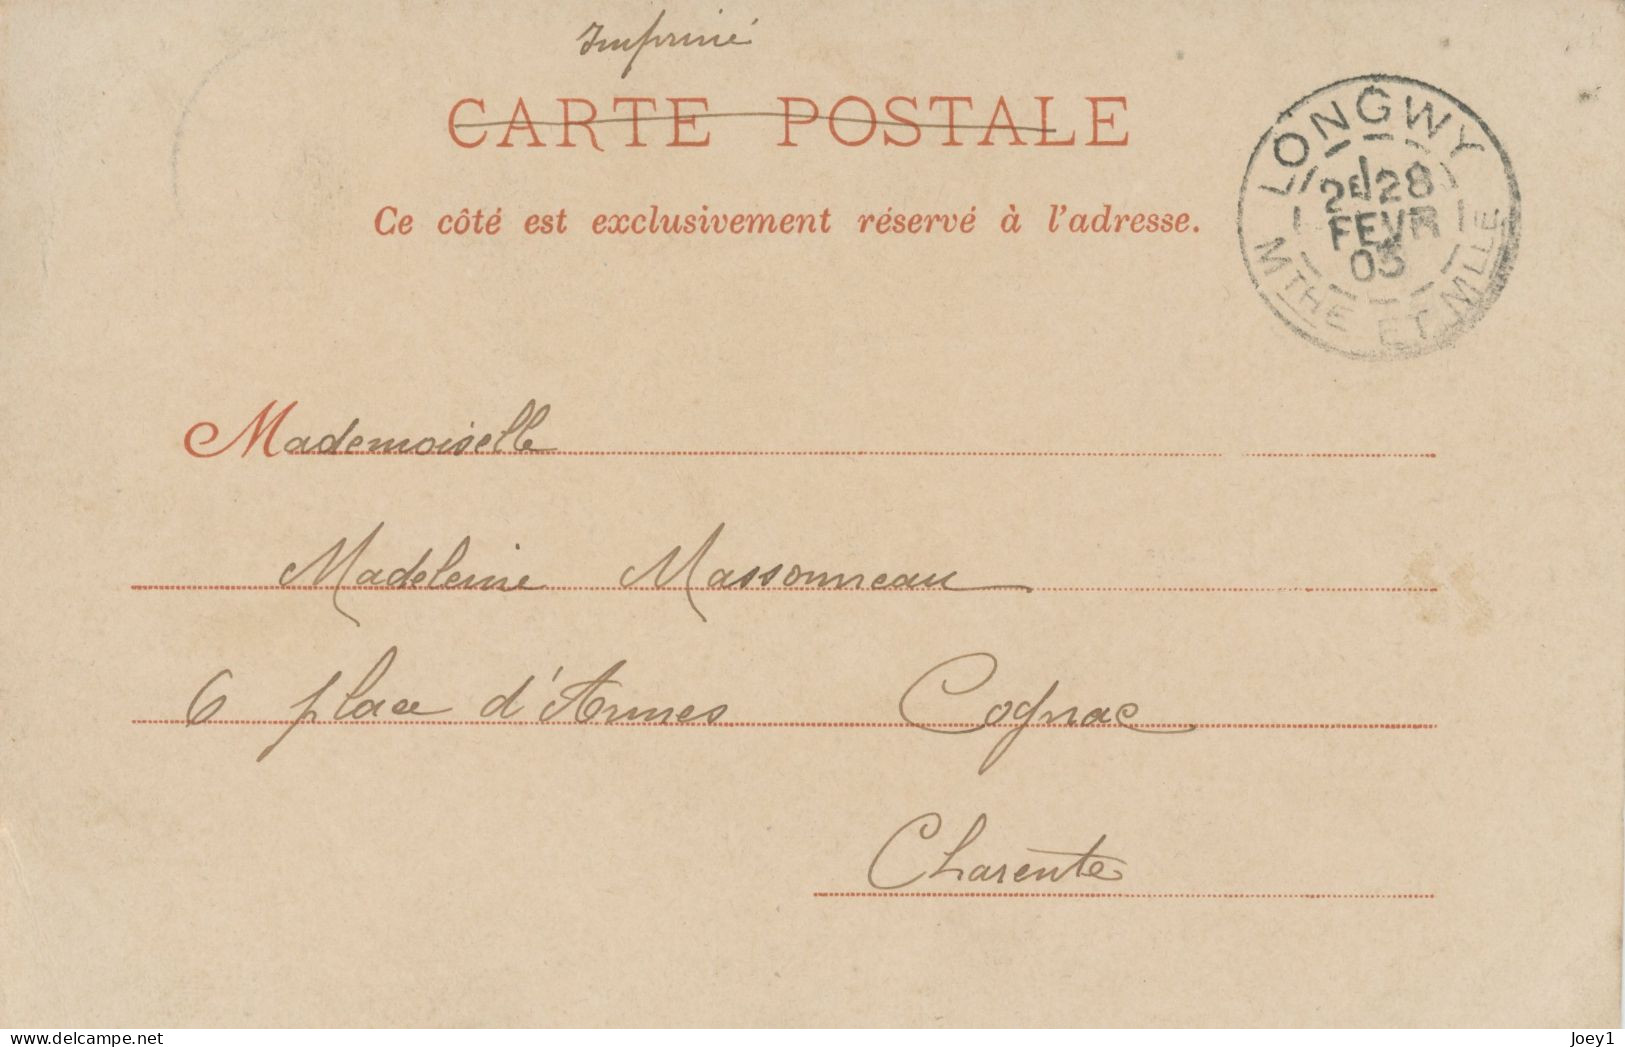 Imprimé
CARTE POSTALE
Ce côté est exclusivement réservé à l'adresse.
LONGWY
2E 28
FEVR
03
MTHE ET MLLE
Mademoiselle
Madeleine Massonneau
6 place d'Armes Cognac
Charente
www.delcampe.net
Joey1